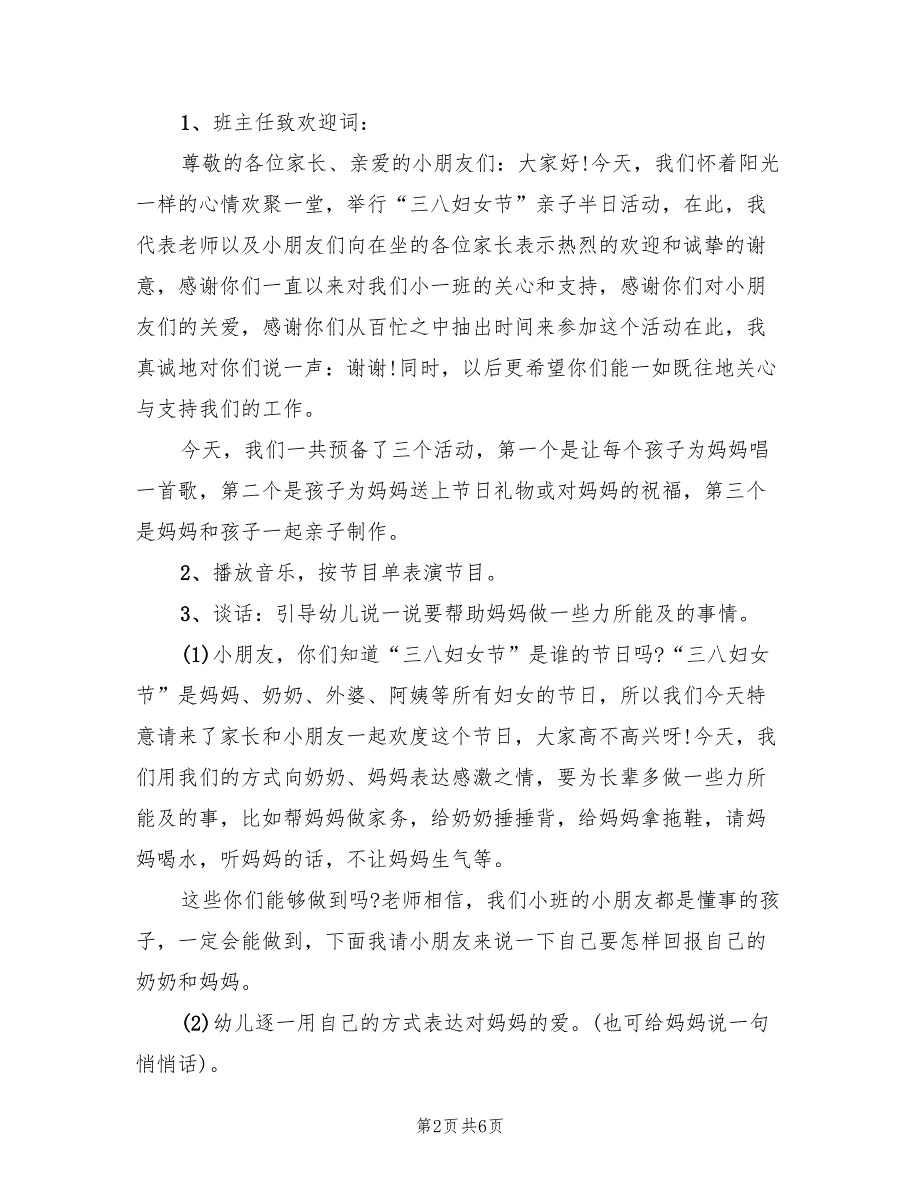 1、班主任致欢迎词：
尊敬的各位家长、亲爱的小朋友们：大家好!今天，我们怀着阳光
一样的心情欢聚一堂，举行“三八妇女节”亲子半日活动，在此，我
代表老师以及小朋友们向在坐的各位家长表示热烈的欢迎和诚挚的谢
意，感谢你们一直以来对我们小一班的关心和支持，感谢你们对小朋
友们的关爱，感谢你们从百忙之中抽出时间来参加这个活动在此，我
真诚地对你们说一声：谢谢!同时，以后更希望你们能一如既往地关心
与支持我们的工作。
今天，我们一共预备了三个活动，第一个是让每个孩子为妈妈唱
一首歌，第二个是孩子为妈妈送上节日礼物或对妈妈的祝福，第三个
是妈妈和孩子一起亲子制作。
2、播放音乐，按节目单表演节目。
3、谈话：引导幼儿说一说要帮助妈妈做一些力所能及的事情。
(1)小朋友，你们知道“三八妇女节”是谁的节日吗?“三八妇女
节”是妈妈、奶奶、外婆、阿姨等所有妇女的节日，所以我们今天特
意请来了家长和小朋友一起欢度这个节日，大家高不高兴呀!今天，我
们用我们的方式向奶奶、妈妈表达感激之情，要为长辈多做一些力所
能及的事，比如帮妈妈做家务，给奶奶捶捶背，给妈妈拿拖鞋，请妈
妈喝水，听妈妈的话，不让妈妈生气等。
这些你们能够做到吗?老师相信，我们小班的小朋友都是懂事的孩
子，一定会能做到，下面我请小朋友来说一下自己要怎样回报自己的
奶奶和妈妈。
(2)幼儿逐一用自己的方式表达对妈妈的爱。(也可给妈妈说一句
悄悄话)。
第2页 共6页